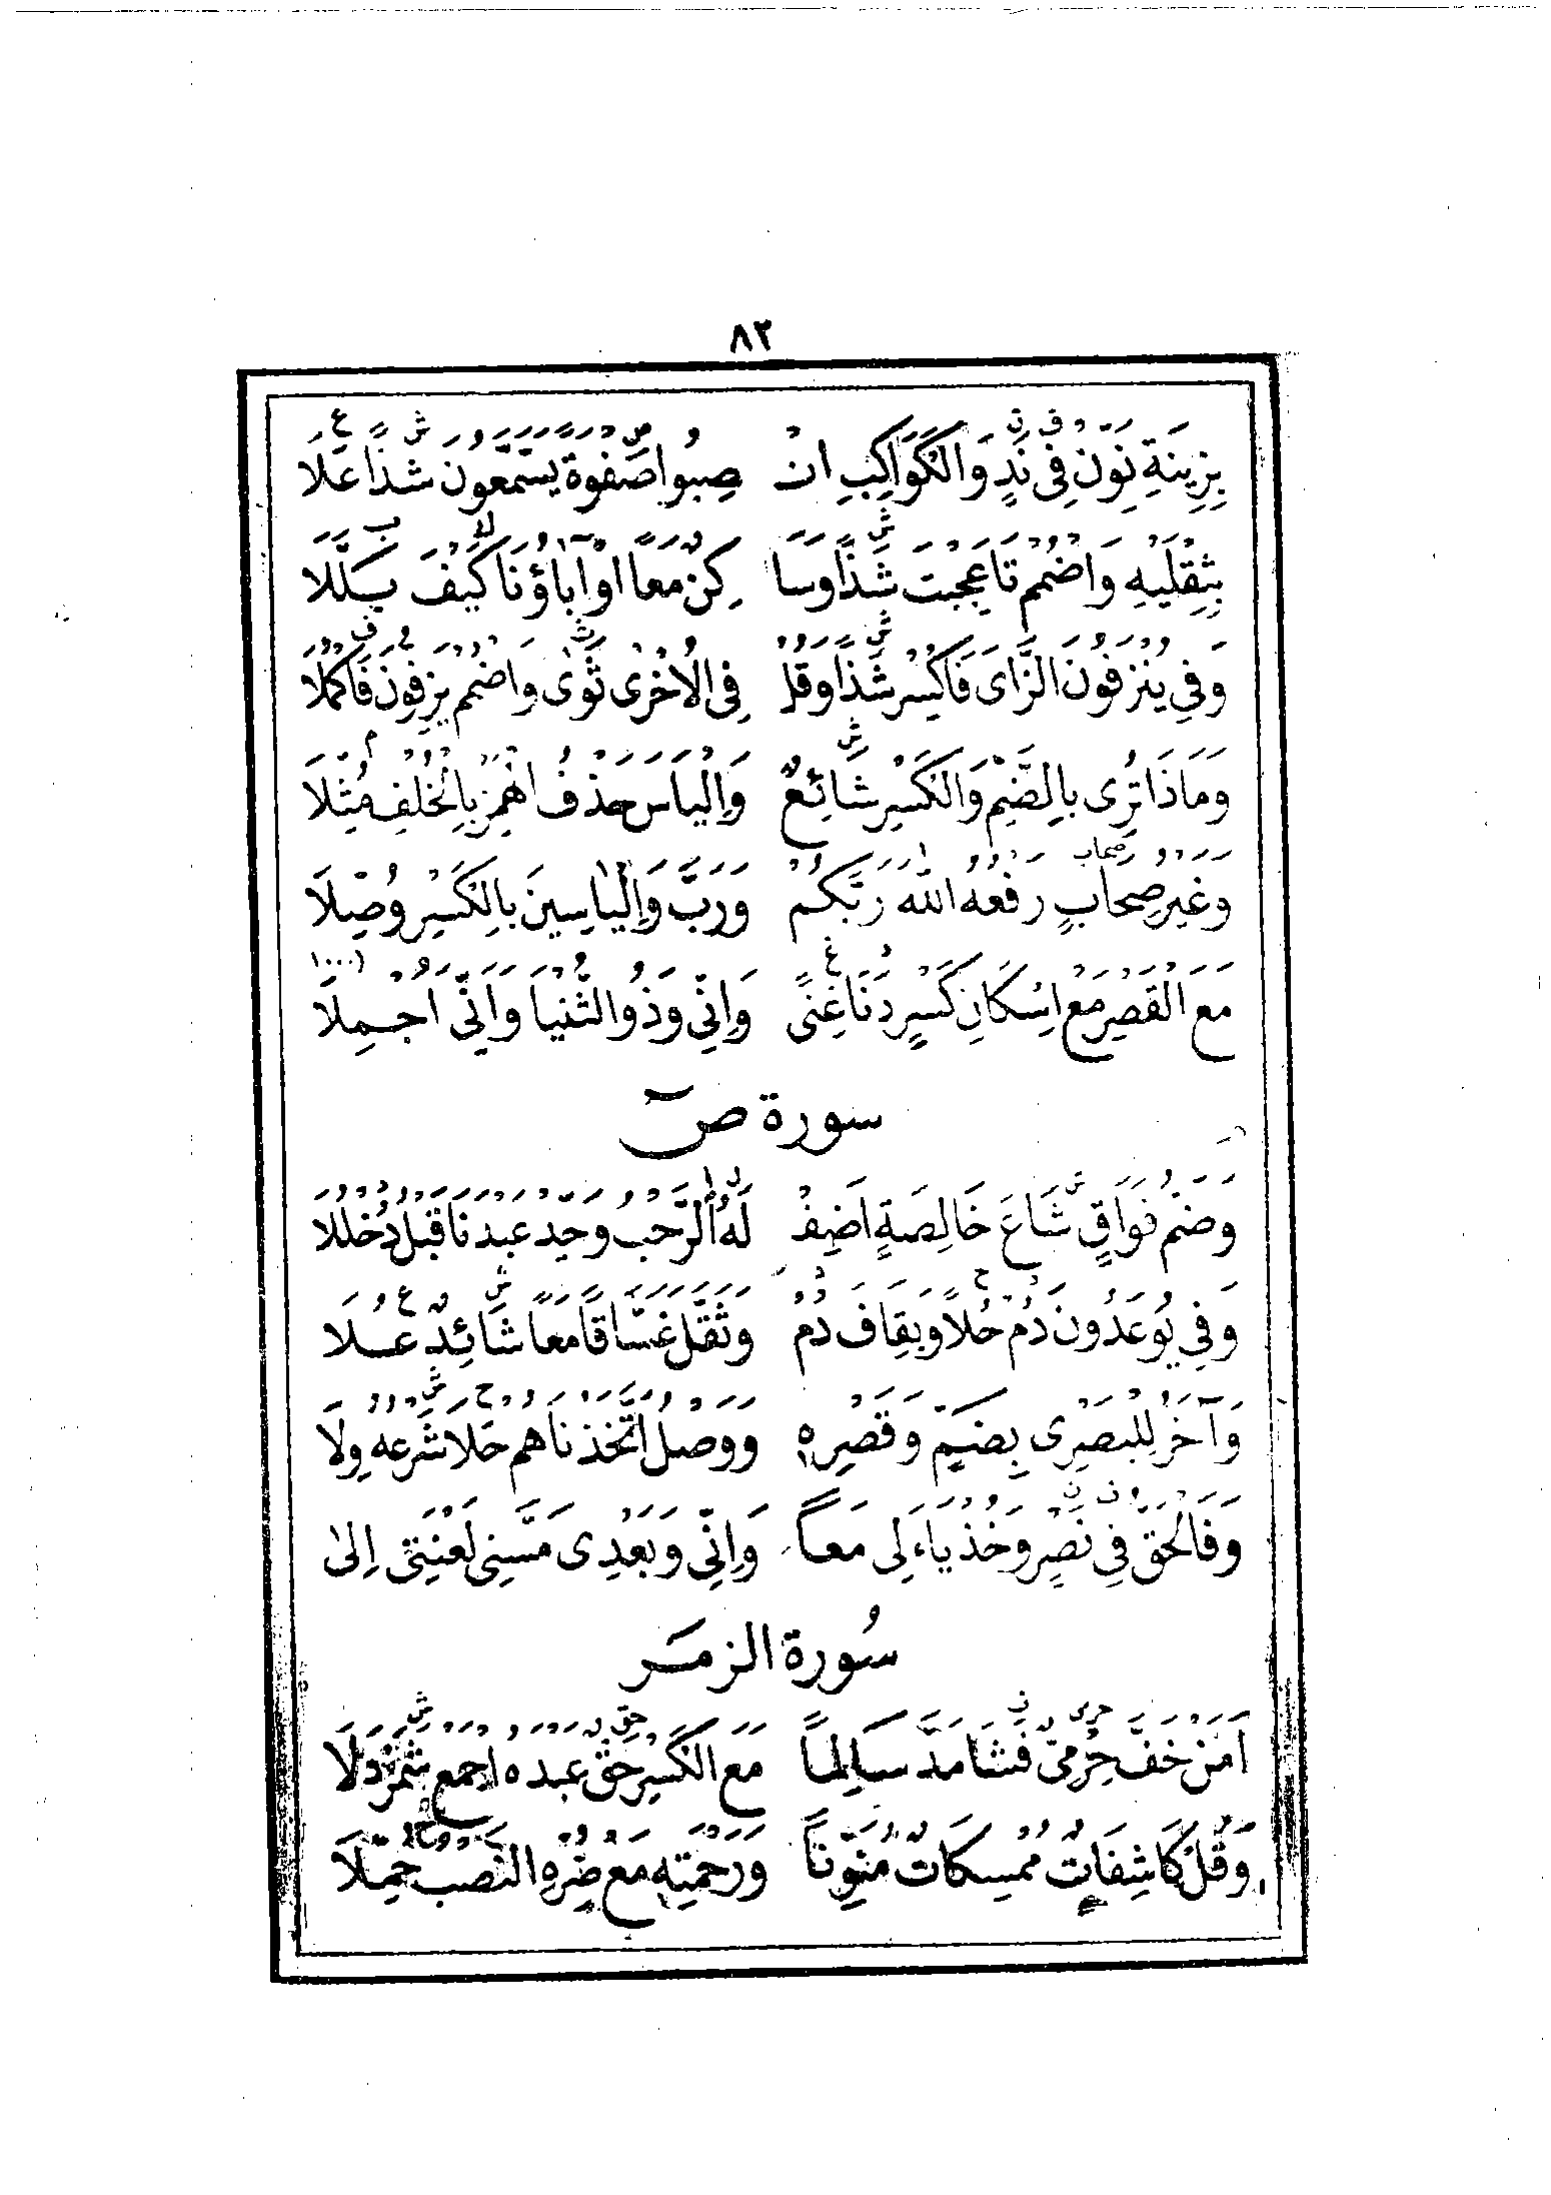 ٨٢
بِزِينَةِ نَوِّن فِى نَدٍ وَالْكَوَاكِبِ انْ صِبُوا صَفْوَةً يَسَّمَّعُونَ شَذًا عَلَا
بِثِقْلَيْهِ وَاضْمُمْ تَا عَجِبْتَ شَذًا وَسَا كِنٌ مَعًا اَوْ آبَاؤُنَا كَيْفَ بَلَّلَا
وَفِى يُنْزَفُونَ الزَّاىَ فَاكْسِرْ شَذًا وَقُلْ فِى الْاُخْرٰى ثَوٰى وَاضْمُمْ يَزِفُّونَ فَاكْمُلَا
وَمَاذَا تُرِى بِالضَّمِّ وَالْكَسْرِ شَائِعٌ وَاِلْيَاسَ حَذْفُ الْهَمْزِ بِالْخُلْفِ مُثِّلَا
وَغَيْرُ صِحَابٍ رَفْعُهُ اللهُ رَبُّكُمْ وَرَبُّ وَاِلْيَاسِينَ بِالْكَسْرِ وُصِّلَا
مَعَ الْقَصْرِ مَعَ اِسْكَانِ كَسْرٍ دَنَا غِنًى وَاِنِّى وَذُو الثُّنْيَا وَاَنِّى اُجْمِلَا
سورة صۤ
وَضَمُّ فَوَاقٍ شَاعَ خَالِصَةٍ اَضِفْ لَهُ الرَّحْبُ وَحِّدْ عَبْدَنَا قَبْلُ دُخْلُلَا
وَفِى يُوعَدُونَ دُمْ حُلًا وَبِقَافَ دُمْ وَثَقَّلَ غَسَّاقًا مَعًا شَائِدٌ عُلَا
وَآخَرُ لِلْبَصْرِى بِضَمٍّ وَقَصْرِهِ وَوَصْلُ اتَّخَذْنَاهُمْ حَلَا شَرْعُهُ وِلَا
وَفَالْحَقُّ فِى نَصْرٍ وَخُذْ يَاءَ لِى مَعًا وَاِنِّى وَبَعْدِى مَسَّنِى لَعْنَتِى اِلٰى
سُورة الزمَر
اَمَنْ خَفَّ حِرْمِىٌّ فَشَا مَدَّ سَالِمًا مَعَ الْكَسْرِ حَقٌّ عَبْدَهُ اجْمَعْ شَمَرْدَلَا
وَقُلْ كَاشِفَاتٌ مُمْسِكَاتٌ مُنَوِّنًا وَرَحْمَتِهِ مَعْ ضُرِّهِ النَّصْبُ حُمِّلَا